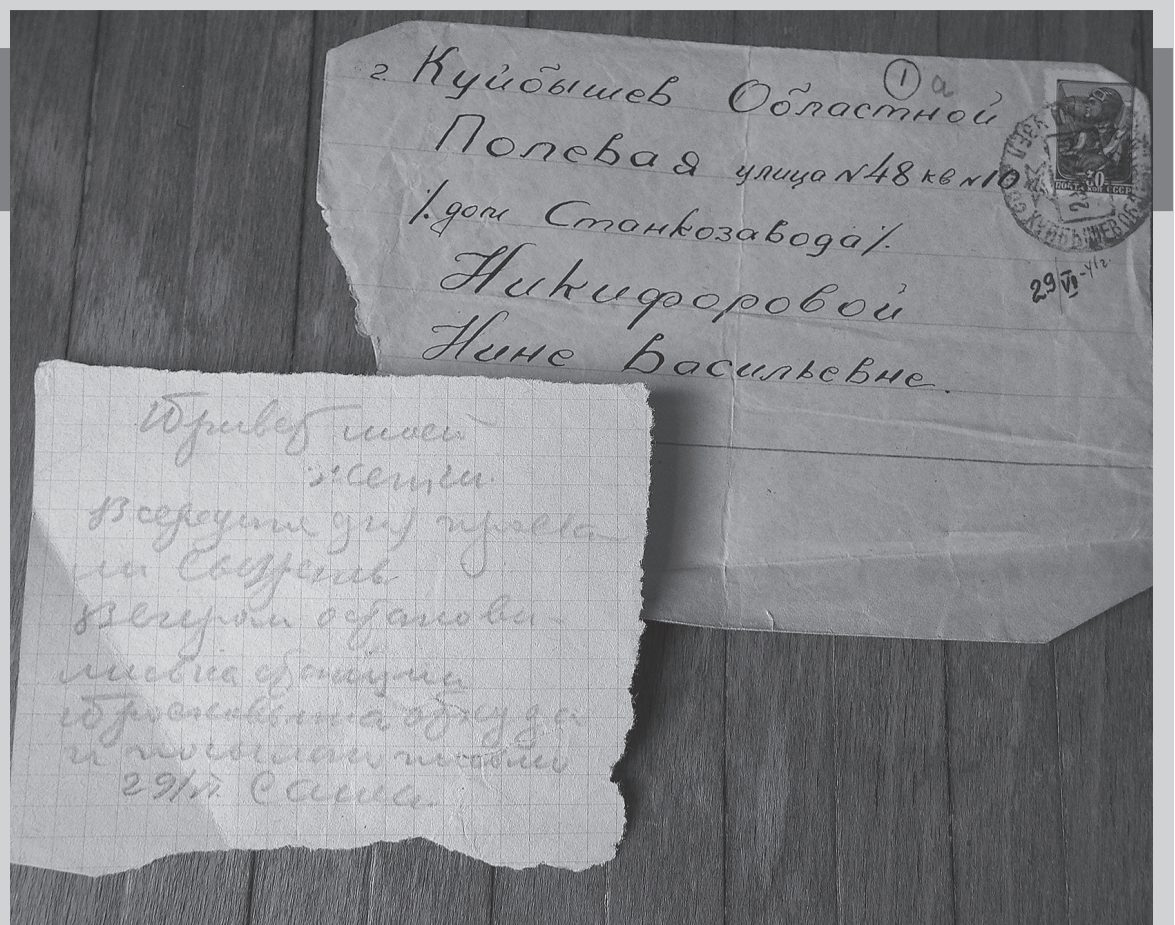 г. Куйбышев Областной
1 а
Полевая улица N48 кв N10
/. дом Станкозавода /.
Никифоровой
Нине Васильевне.
ПОЧТА СССР
30
КУЙБЫШЕВ ОБЛ
29 VI-41г.
Привет моей
жене.
В середине дня проеха-
ли Сызрань
Вечером останови-
лись на станции
отсюда
и посылаю письмо
29/VI Саша